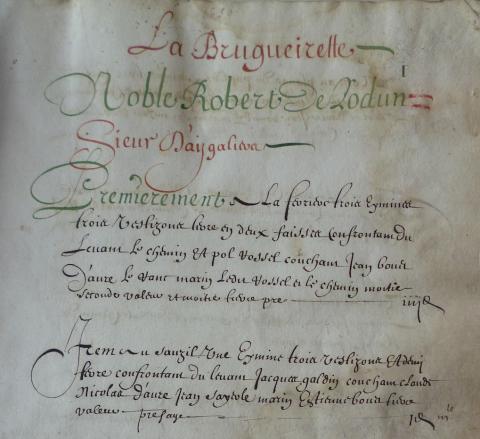 La Brugueirelle
I
Noble Robert De Lodun
Sieur D'aygaliers
Premierement A La ferriere trois Eymines
trois Veslizons terre en deux faisses Confrontant du
Levant le chemin Et pol Rossel couchant Jean bouet
D'aure le vent marin Ledit Rossel et le chemin moitie
seconde valeur et moitie tierce pre
Item au Sauzil Une Eymine trois Veslizons Et demi
terre confrontant du levant Jacques galdin couchant claude
Nicolas d'aure Jean marin Estienne bouet tierce
valeur pre